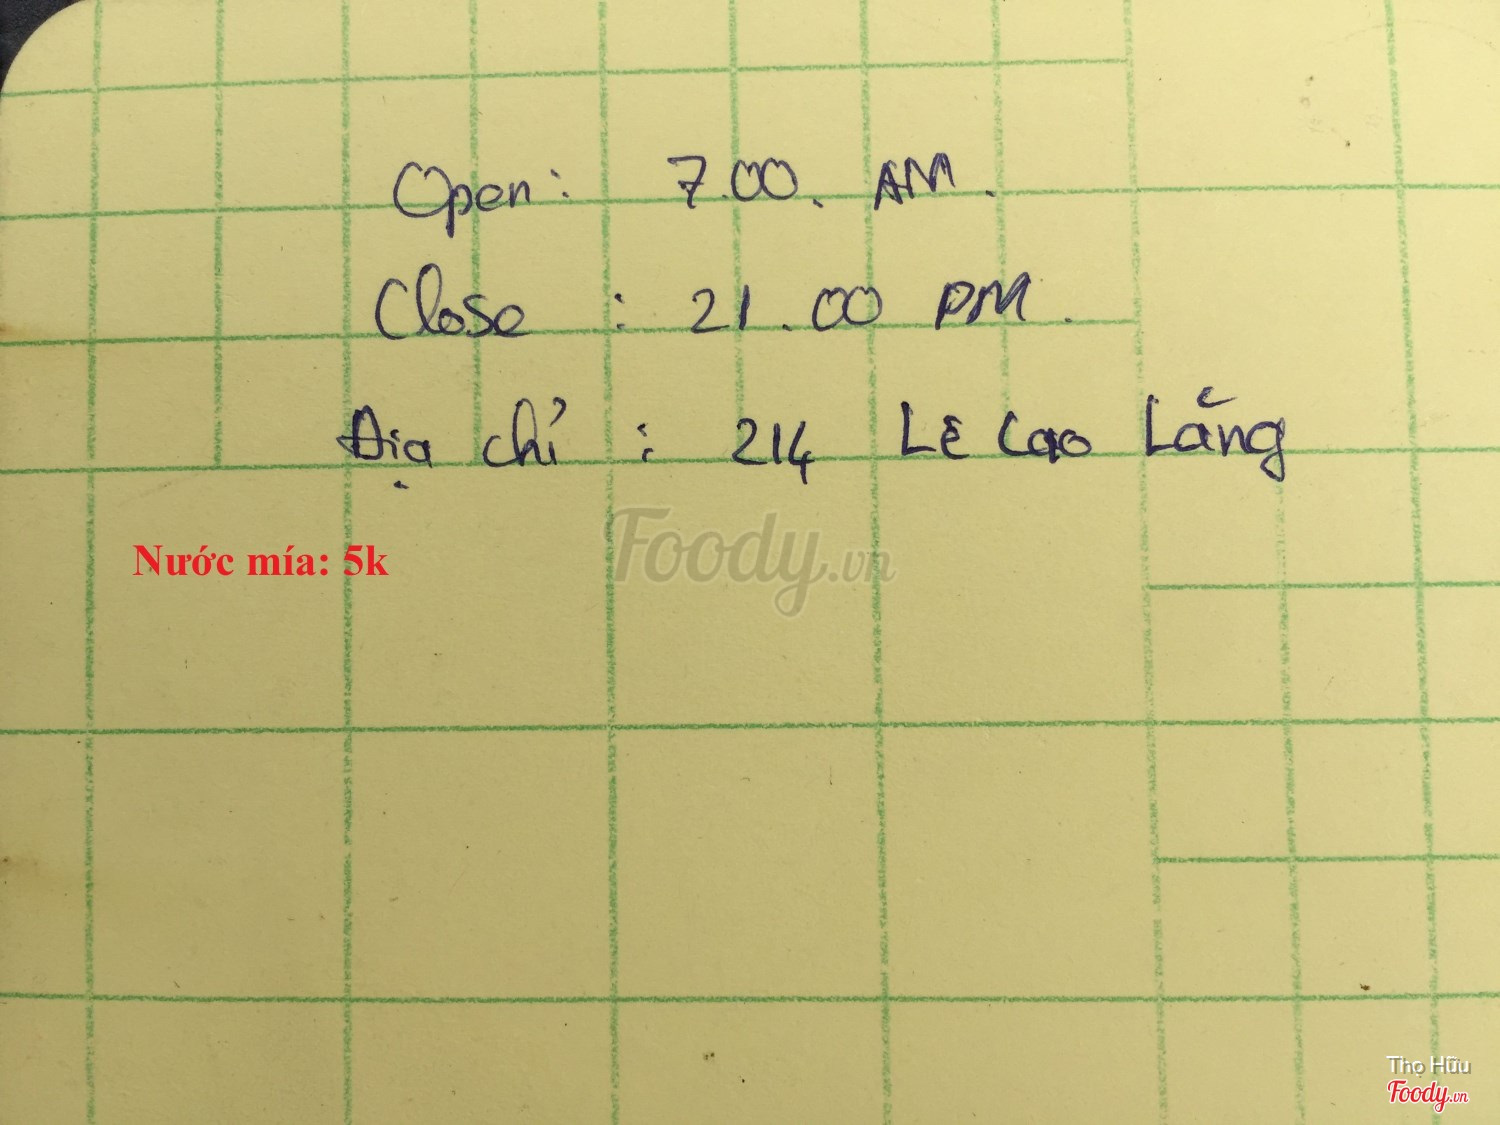 Open: 7.00. AM.
Close : 21.00 PM.
Địa chỉ : 214 Lê Cao Lãng
Nước mía: 5k
Foody.vn
Thọ Hữu
Foody.vn